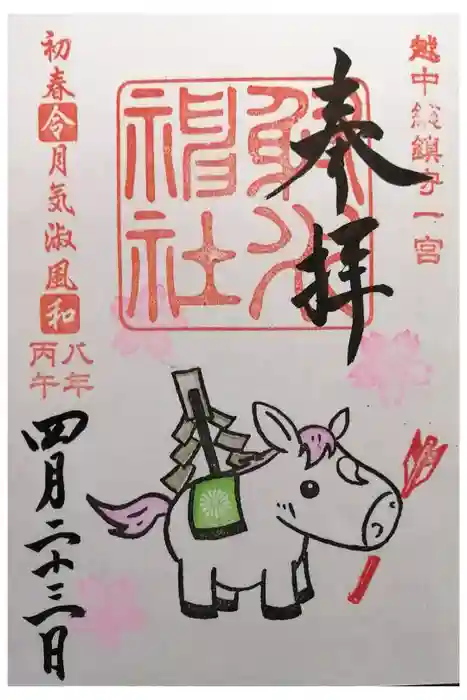 越中総鎮守一宮
奉拝
射水
神社
初春令月気淑風和
八年
丙午
四月二十三日